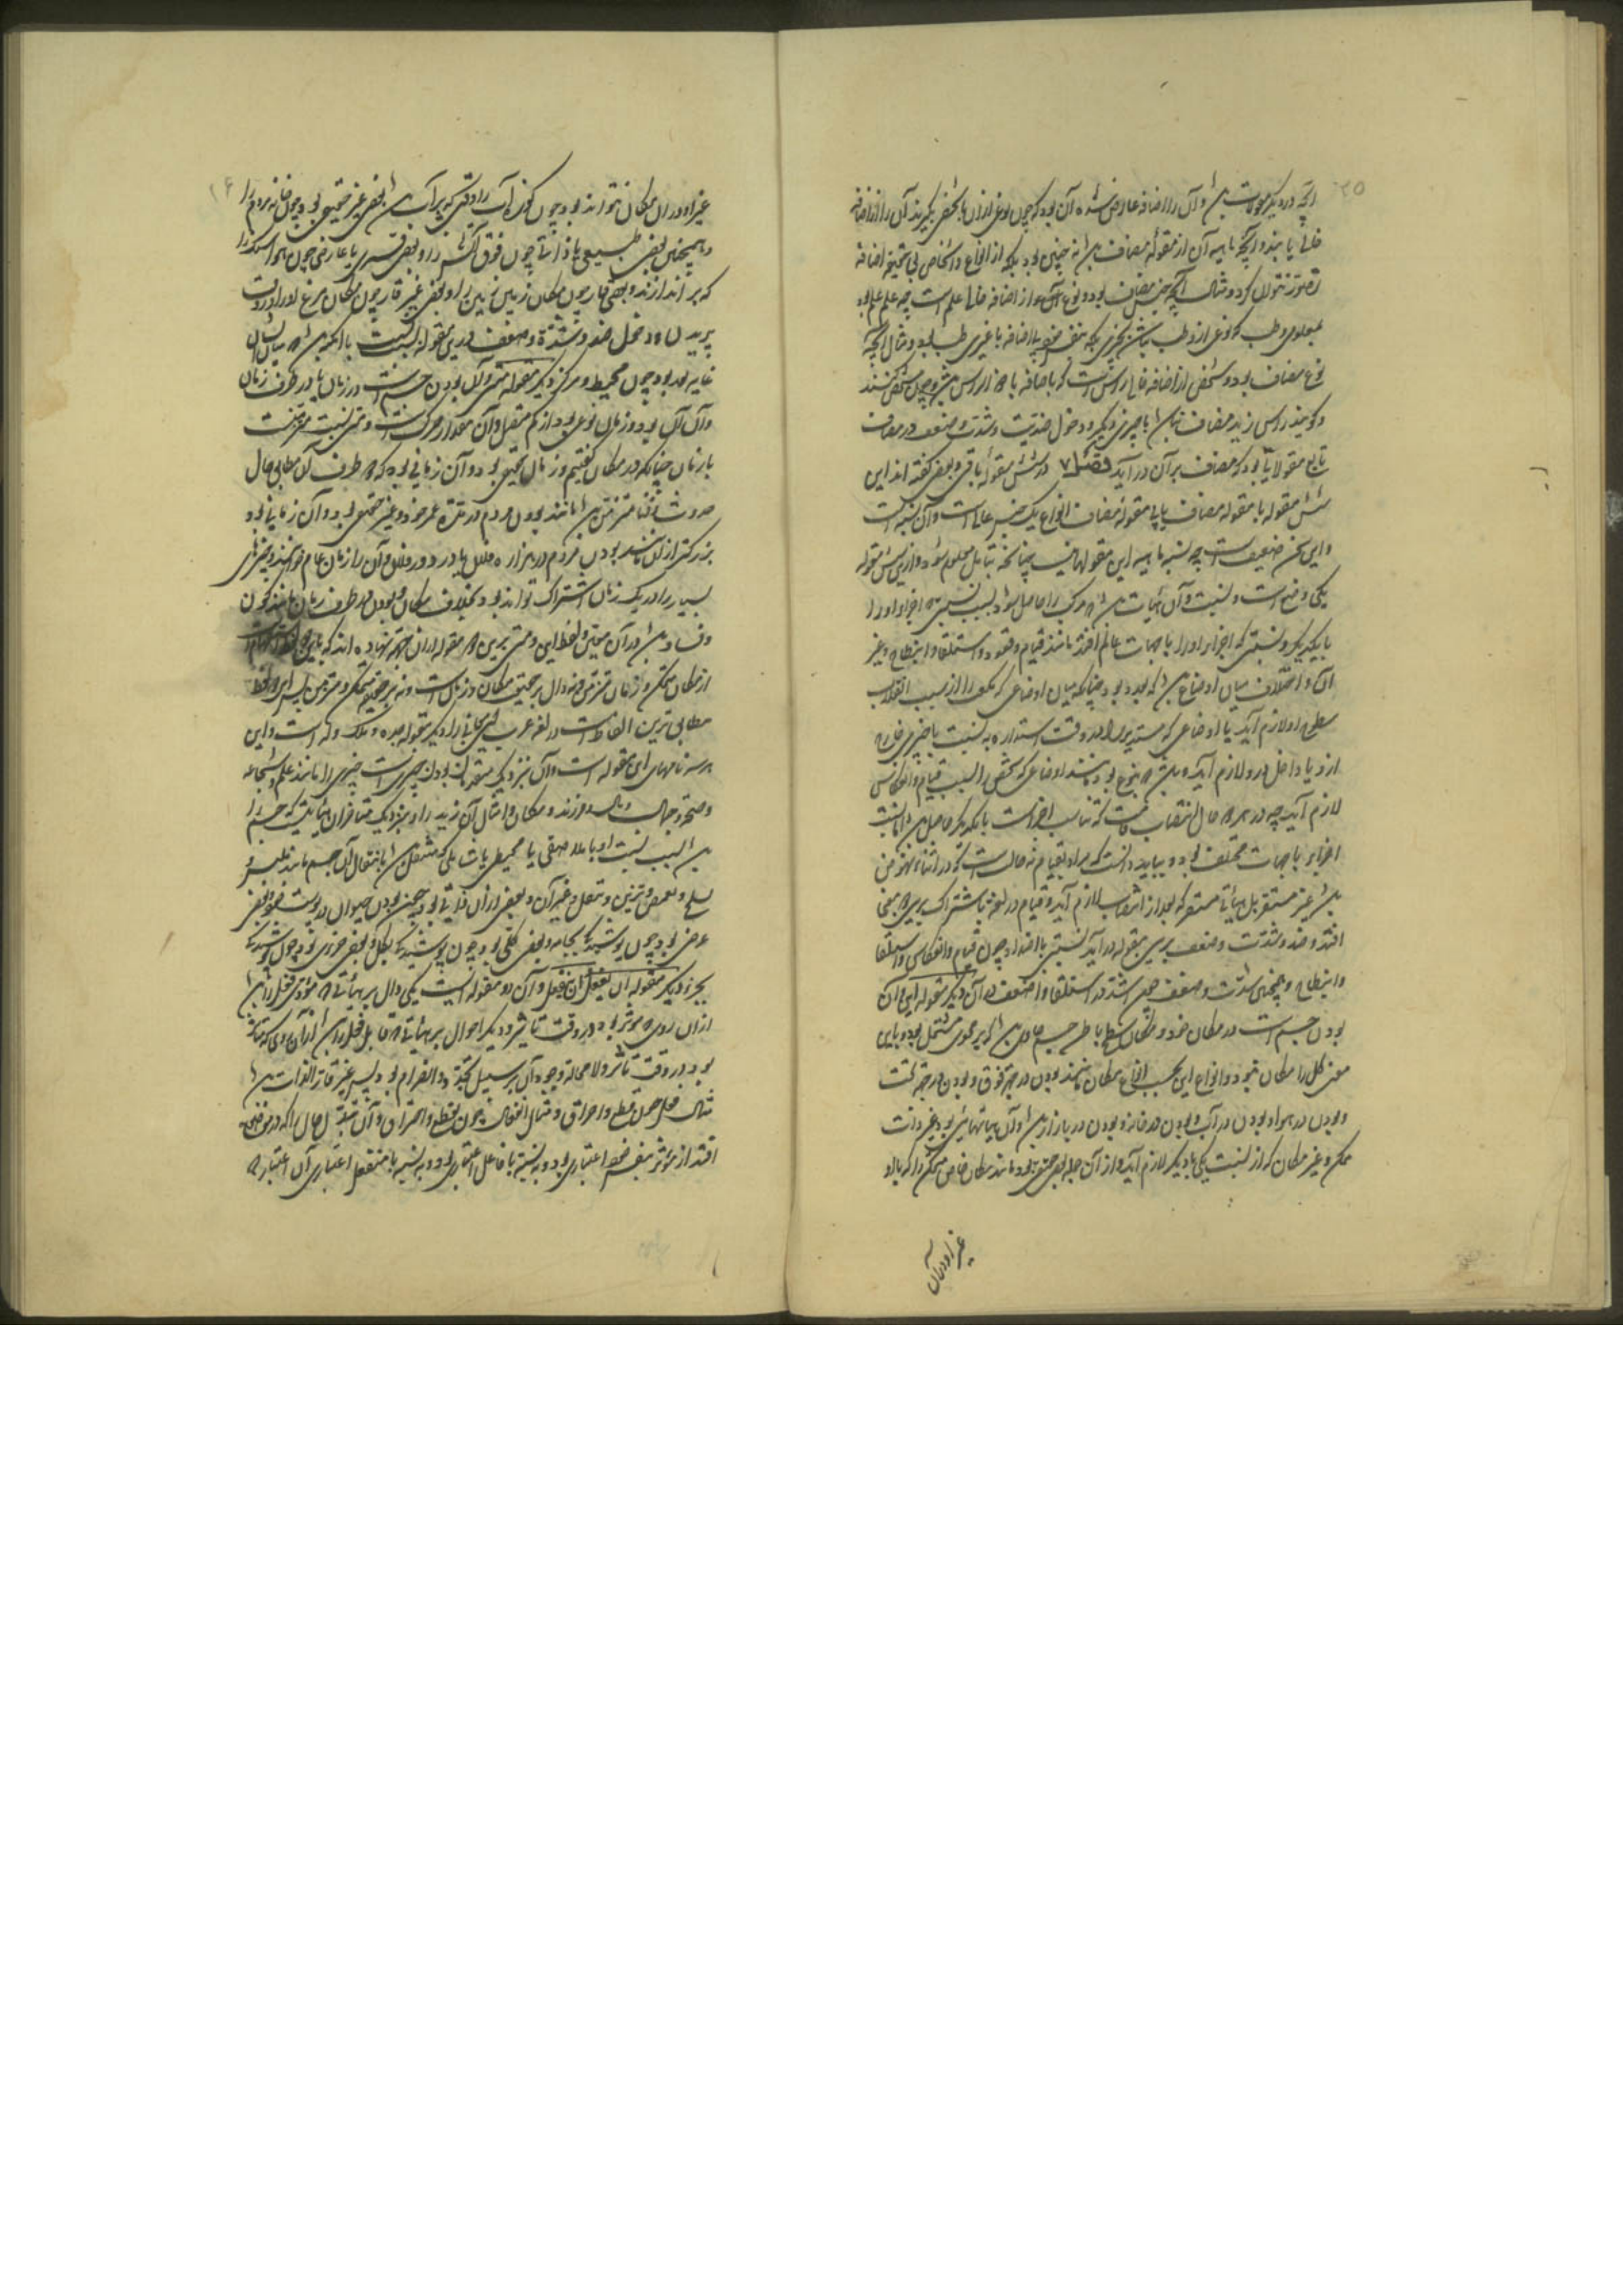 آنچه در دیگر مقولات باشد و آن را اضافه عارض شده آن بود که چون نوعی ازان یا شخصی بگیرند آن را از اضافه
خالی یابند و آنچه ماهیه آن از مقوله مضاف باشد نه چنین بود بلکه از انواع و اشخاص بی اضافه
تصور نتوان کرد و مثال آنچه جنس مضاف بود و نوع از اضافه خالی علم است چه علم علم بود
بمعلومی و طب که نوعی از و طب باشد بچیزی بلکه بنفس خود بلا اضافه با غیری طب بود و مثال آنچه
نوع مضاف بود و شخص از اضافه خالی راس است که باضافه با راس باشد و چون مشخص کنند
و گویند راس زید مضاف نباشد با چیزی دیگر و دخول ضدیت و شدت و ضعف در مضاف
تابع مقولاتی بود که مضاف بر آن درآید فصل ۷ در شش مقوله باقی و بعضی گفته اند این
شش مقوله با مقوله مضاف یا بی مقوله مضاف انواع یک جنس عالی است و آن نسبه است
و این سخن ضعیف است چه نسبه ماهیه این مقولها نیست چنانکه بتامل معلوم شود و ازین شش مقوله
یکی وضع است و نسبت و آن هیأت باشد که مرکب را حاصل شود بسبب نسبتی که اجزاء او را
با یکدیگر و نسبتی که اجزاء او را با جهات عالم افتد مانند قیام و قعود و استلقا و انبطاح و غیر
آن و اختلاف میان اوضاع باشد که بعدد بود چنانکه میان اوضاعی که مکعب را از سبب انقلاب
سطوح او لازم آید یا اوضاعی که مستدیر را در وقت استداره به نسبت با چیزی خارج
ازو یا داخل درو لازم آید و باشد که بنوع بود مانند اوضاعی که شخص را بسبب قیام و انتکاس
لازم آید چه در هر دو حال انتصاب قامت که تناسب اجزاست با یکدیگر حاصل باشد اما نسبت
اجزاء با جهات مختلف بود و بباید دانست که مراد بقیام نه حالت است که در اثناء نهوض
باشد غیر مستقر بل هیأتی مستقر که بعد از انتصاب لازم آید و قیام در لغة باشتراک برین دو معنی
افتد و ضد و شدت و ضعف برین مقوله درآید نسبتی با اضداد چون قیام و انتکاس و استلقا
و انبطاح و همچنین شدت و ضعف چون اشد در استلقا و اضعف در آن دیگر مقوله این و آن
بودن جسم است در مکان خود و مکان سطح باطن جسم حاوی باشد که بر محوی مشتمل بود و باین
معنی کل را مکان نبود و انواع این بحسب انواع مکان باشد مانند بودن در جهة فوق و بودن در جهة تحت
و بودن در هوا و بودن در آب و بودن در خانه و بودن در بازار باشد و آن هیأتهائی بود غیر ذات
متمکن و غیر مکان که از نسبت یکی با دیگر لازم آید و از آن جمله بعضی حقیقی بود مانند مکان خاص متمکن را که با او
غیر او در آن
غیر او در ان مکان نتواند بود چون کوزه آب را وقتی که پر آب باشد و بعضی غیر حقیقی بود چون خانه مردم را
و همچنین بعضی طبیعی یا ذاتی چون فوق آتش را و بعضی قسری یا عارضی چون هوا سنگ را
که بر اندازند و بعضی قار چون مکان زمین زمین را و بعضی غیر قار چون مکان مرغ او را در وقت
پریدن و دخول ضد و شدة و ضعف درین مقوله بسبب نسبت با امکنه باشد که میان ایشان
غایه بعد بود چون محیط و مرکز دیگر مقوله متی و آن بودن جسم است در زمان یا در طرف زمان
و آن آن بود و زمان نوعی بود از کم متصل و آن مقدار حرکت است و متی نسبت متزمن است
با زمان چنانکه در مکان گفتیم و زمان حقیقی بود و آن زمانی بود که طرف آن مطابق حال
حدوث و فنا متزمن باشد مانند بودن مردم در مدة عمر خود و غیر حقیقی بود و آن زمانی بود
بزرگتر از آن مانند بودن مردم در هزاره فلان یا در دور فلان و آن را زمان عام خوانند و چیزهای
بسیار را در یک زمان اشتراک تواند بود بخلاف مکان و بودن در طرف زمان مانند کون
و فساد باشد در آن معین و لفظ این و متی برین دو مقوله از آن جهة نهاده اند که
از مکان متمکن و زمان متزمن دال بر حقیقت مکان و زمان است و نه بر حقیقت متمکن و متزمن پس این دو لفظ
مطابق ترین الفاظ است در لغة عرب این معانی را دیگر مقوله جده و ملک و له است و این
هر سه نامهای این مقوله است و آن بنزدیک متقدمان بودن چیزی است چیزی را مانند علم و شجاعه
و صحة و جمال و مال و فرزند و مکان و امثال آن زید را و بنزدیک متاخران هیأتیست که جسم را
باشد بسبب نسبت او با ملاصقی یا محیطی یا شاملی که منتقل باشد بانتقال آن جسم مانند تلبس و
تسلح و تقمص و تزین و تنعل و غیر آن و بعضی از آن ذاتی بود همچون بودن حیوان در پوست خود و بعضی
عرضی بود چون پوشیدگی بجامه و بعضی کلی بود چون پوشیدگی بکل و بعضی جزوی بود چون پوشیدگی
بجزو دیگر مقوله ان یفعل و ان ینفعل و آن دو مقوله است یکی دال بر هیأتی که مؤدی فعل باشد
از آن روی که مؤثر بود در وقت تاثیر و دیگر احوال بر هیأتی که قابل فعل را باشد از آن روی که متاثر
بود در وقت تاثر و لا محاله وجود آن بر سبیل تجدد و انصرام بود پس غیر قار الذات باشد
مثال فعل چون قطع و احراق و مثال انفعال چون تقطع و احتراق و آن تبدل حال را که در منفعل
افتد از مؤثر بنفس خود اعتباری بود و به نسبة با فاعل اعتباری بود و به نسبة با منفعل اعتباری آن اعتبار که